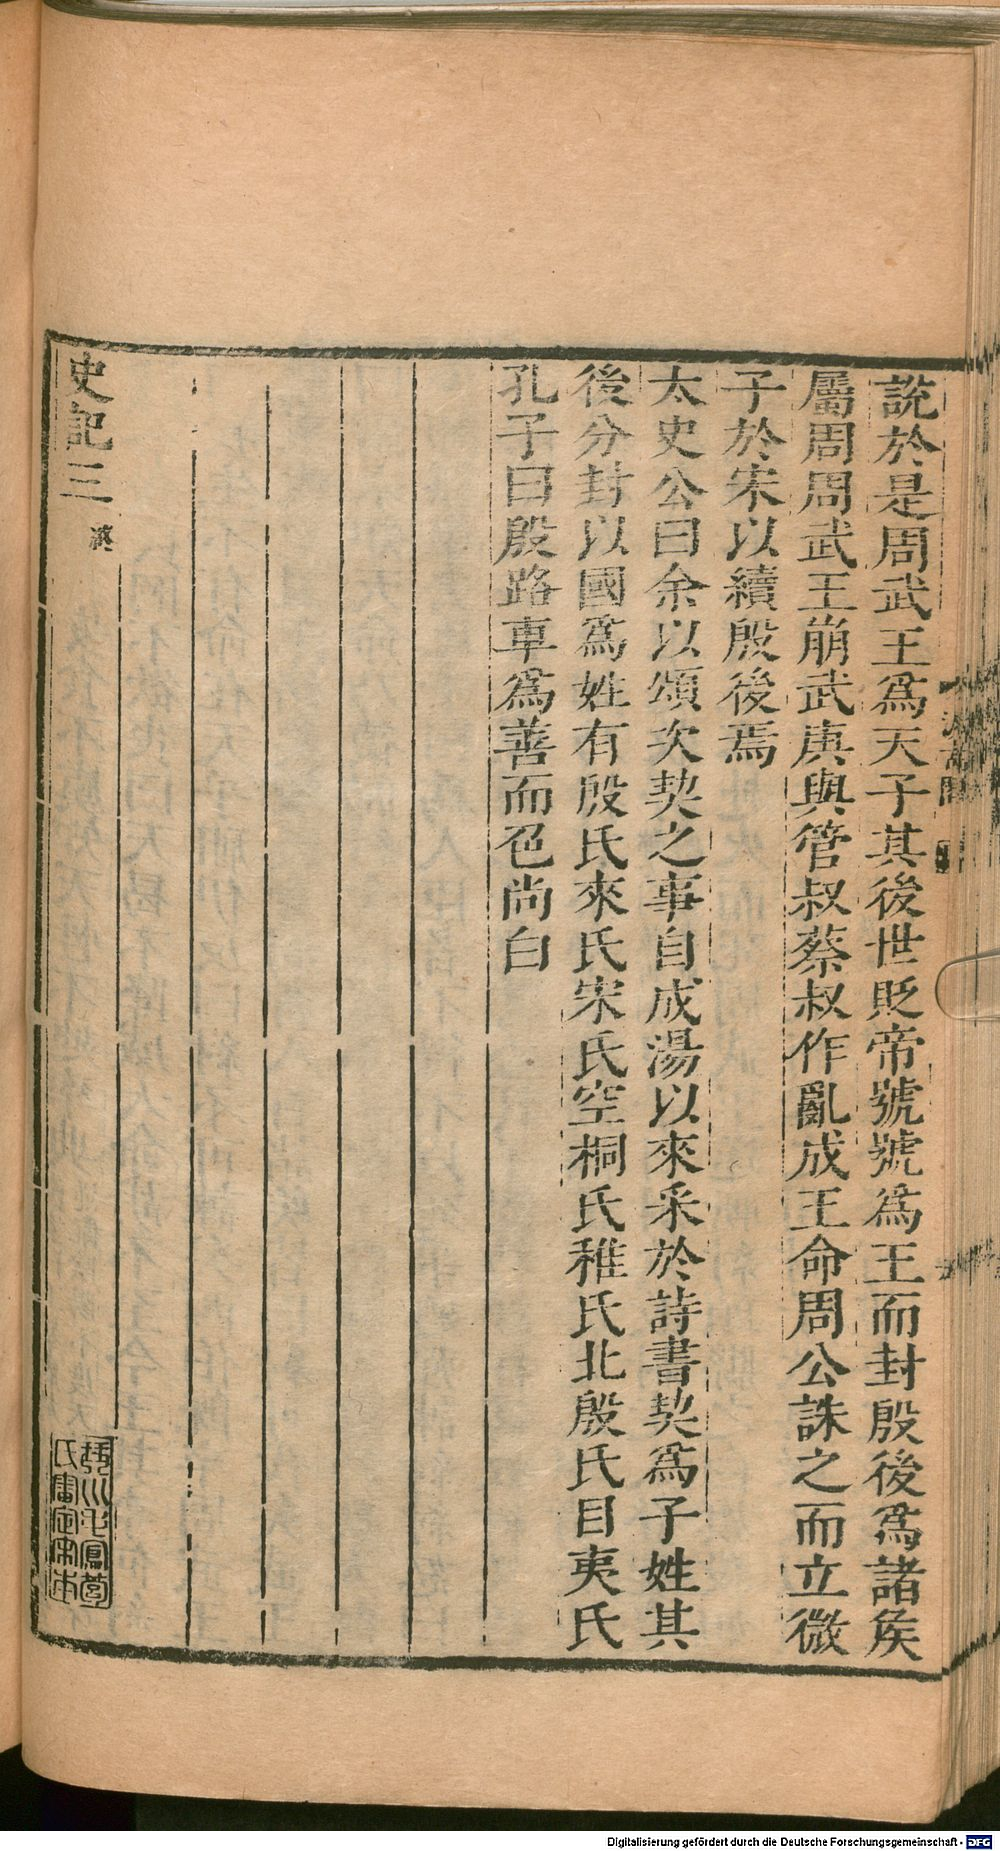 說於是周武王為天子其後世貶帝號號為王而封殷後為諸侯
屬周周武王崩武庚與管叔蔡叔作亂成王命周公誅之而立微
子於宋以續殷後焉
太史公曰余以頌次契之事自成湯以來采於詩書契為子姓其
後分封以國為姓有殷氏來氏宋氏空桐氏稚氏北殷氏目夷氏
孔子曰殷路車為善而色尚白
史記三 終
琴川毛鳳苞
氏審定宋本
Digitalisierung gefördert durch die Deutsche Forschungsgemeinschaft - DFG